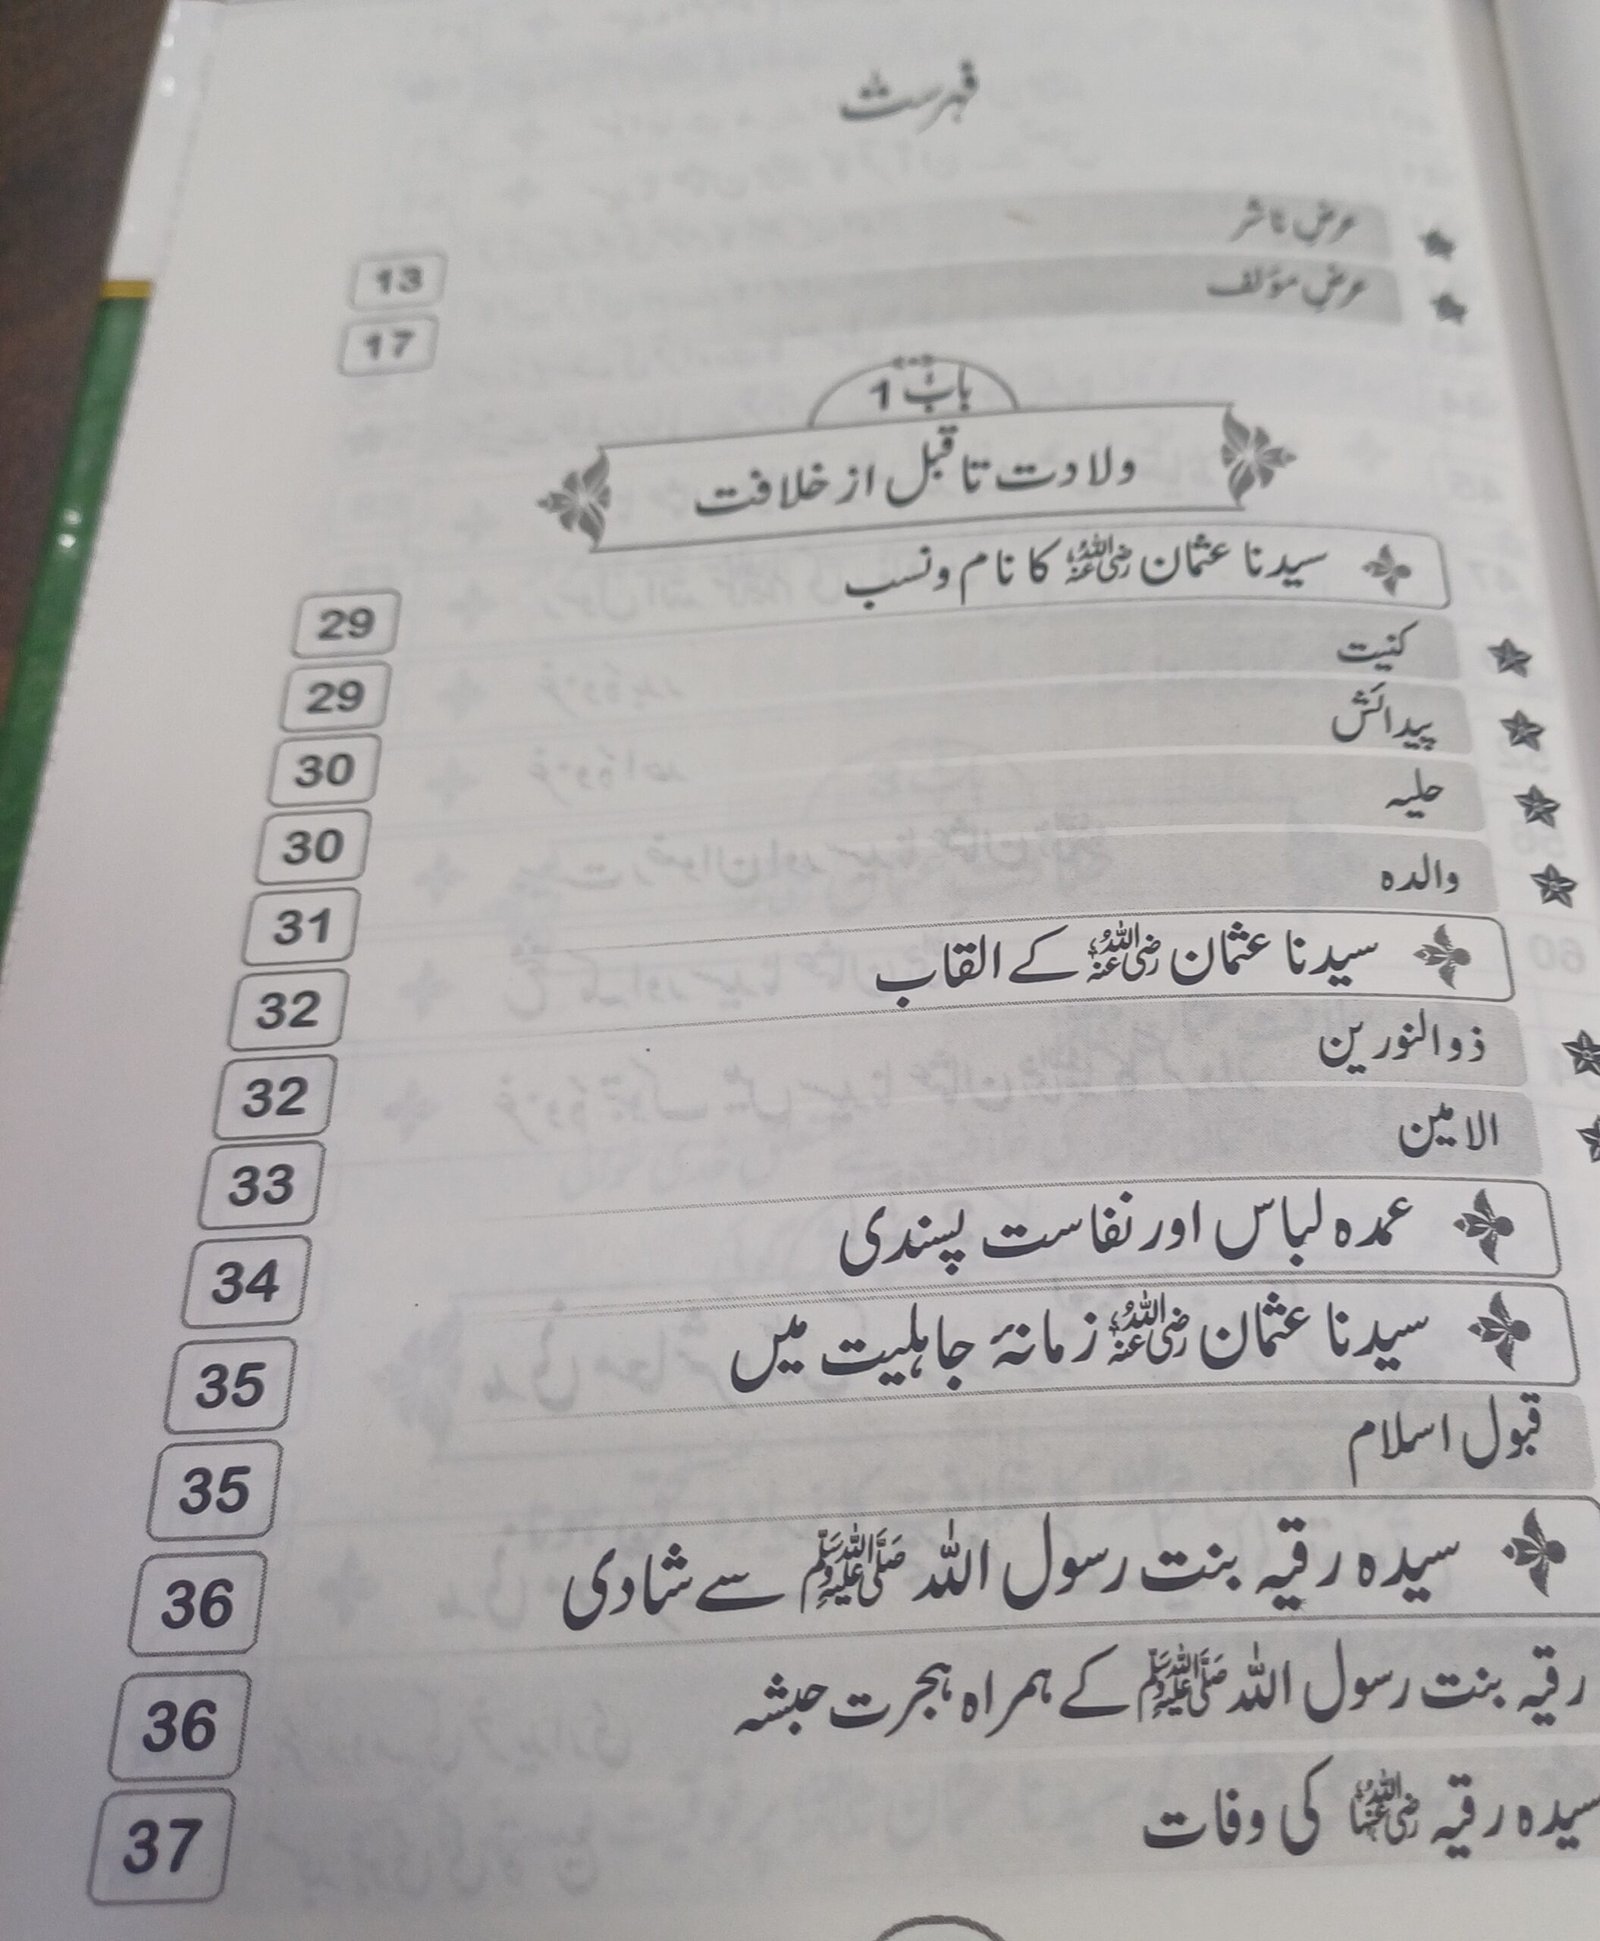 فہرست
عرض ناشر 13
عرض مؤلف 17
باب 1
ولادت تا قبل از خلافت
سیدنا عثمان رضی اللہ عنہ کا نام و نسب 29
کنیت 29
پیدائش 30
حلیہ 30
والدہ 31
سیدنا عثمان رضی اللہ عنہ کے القاب 32
ذوالنورین 32
الامین 33
عمدہ لباس اور نفاست پسندی 34
سیدنا عثمان رضی اللہ عنہ زمانۂ جاہلیت میں 35
قبول اسلام 35
سیدہ رقیہ بنت رسول اللہ ﷺ سے شادی 36
رقیہ بنت رسول اللہ ﷺ کے ہمراہ ہجرت حبشہ 36
سیدہ رقیہ رضی اللہ عنہا کی وفات 37